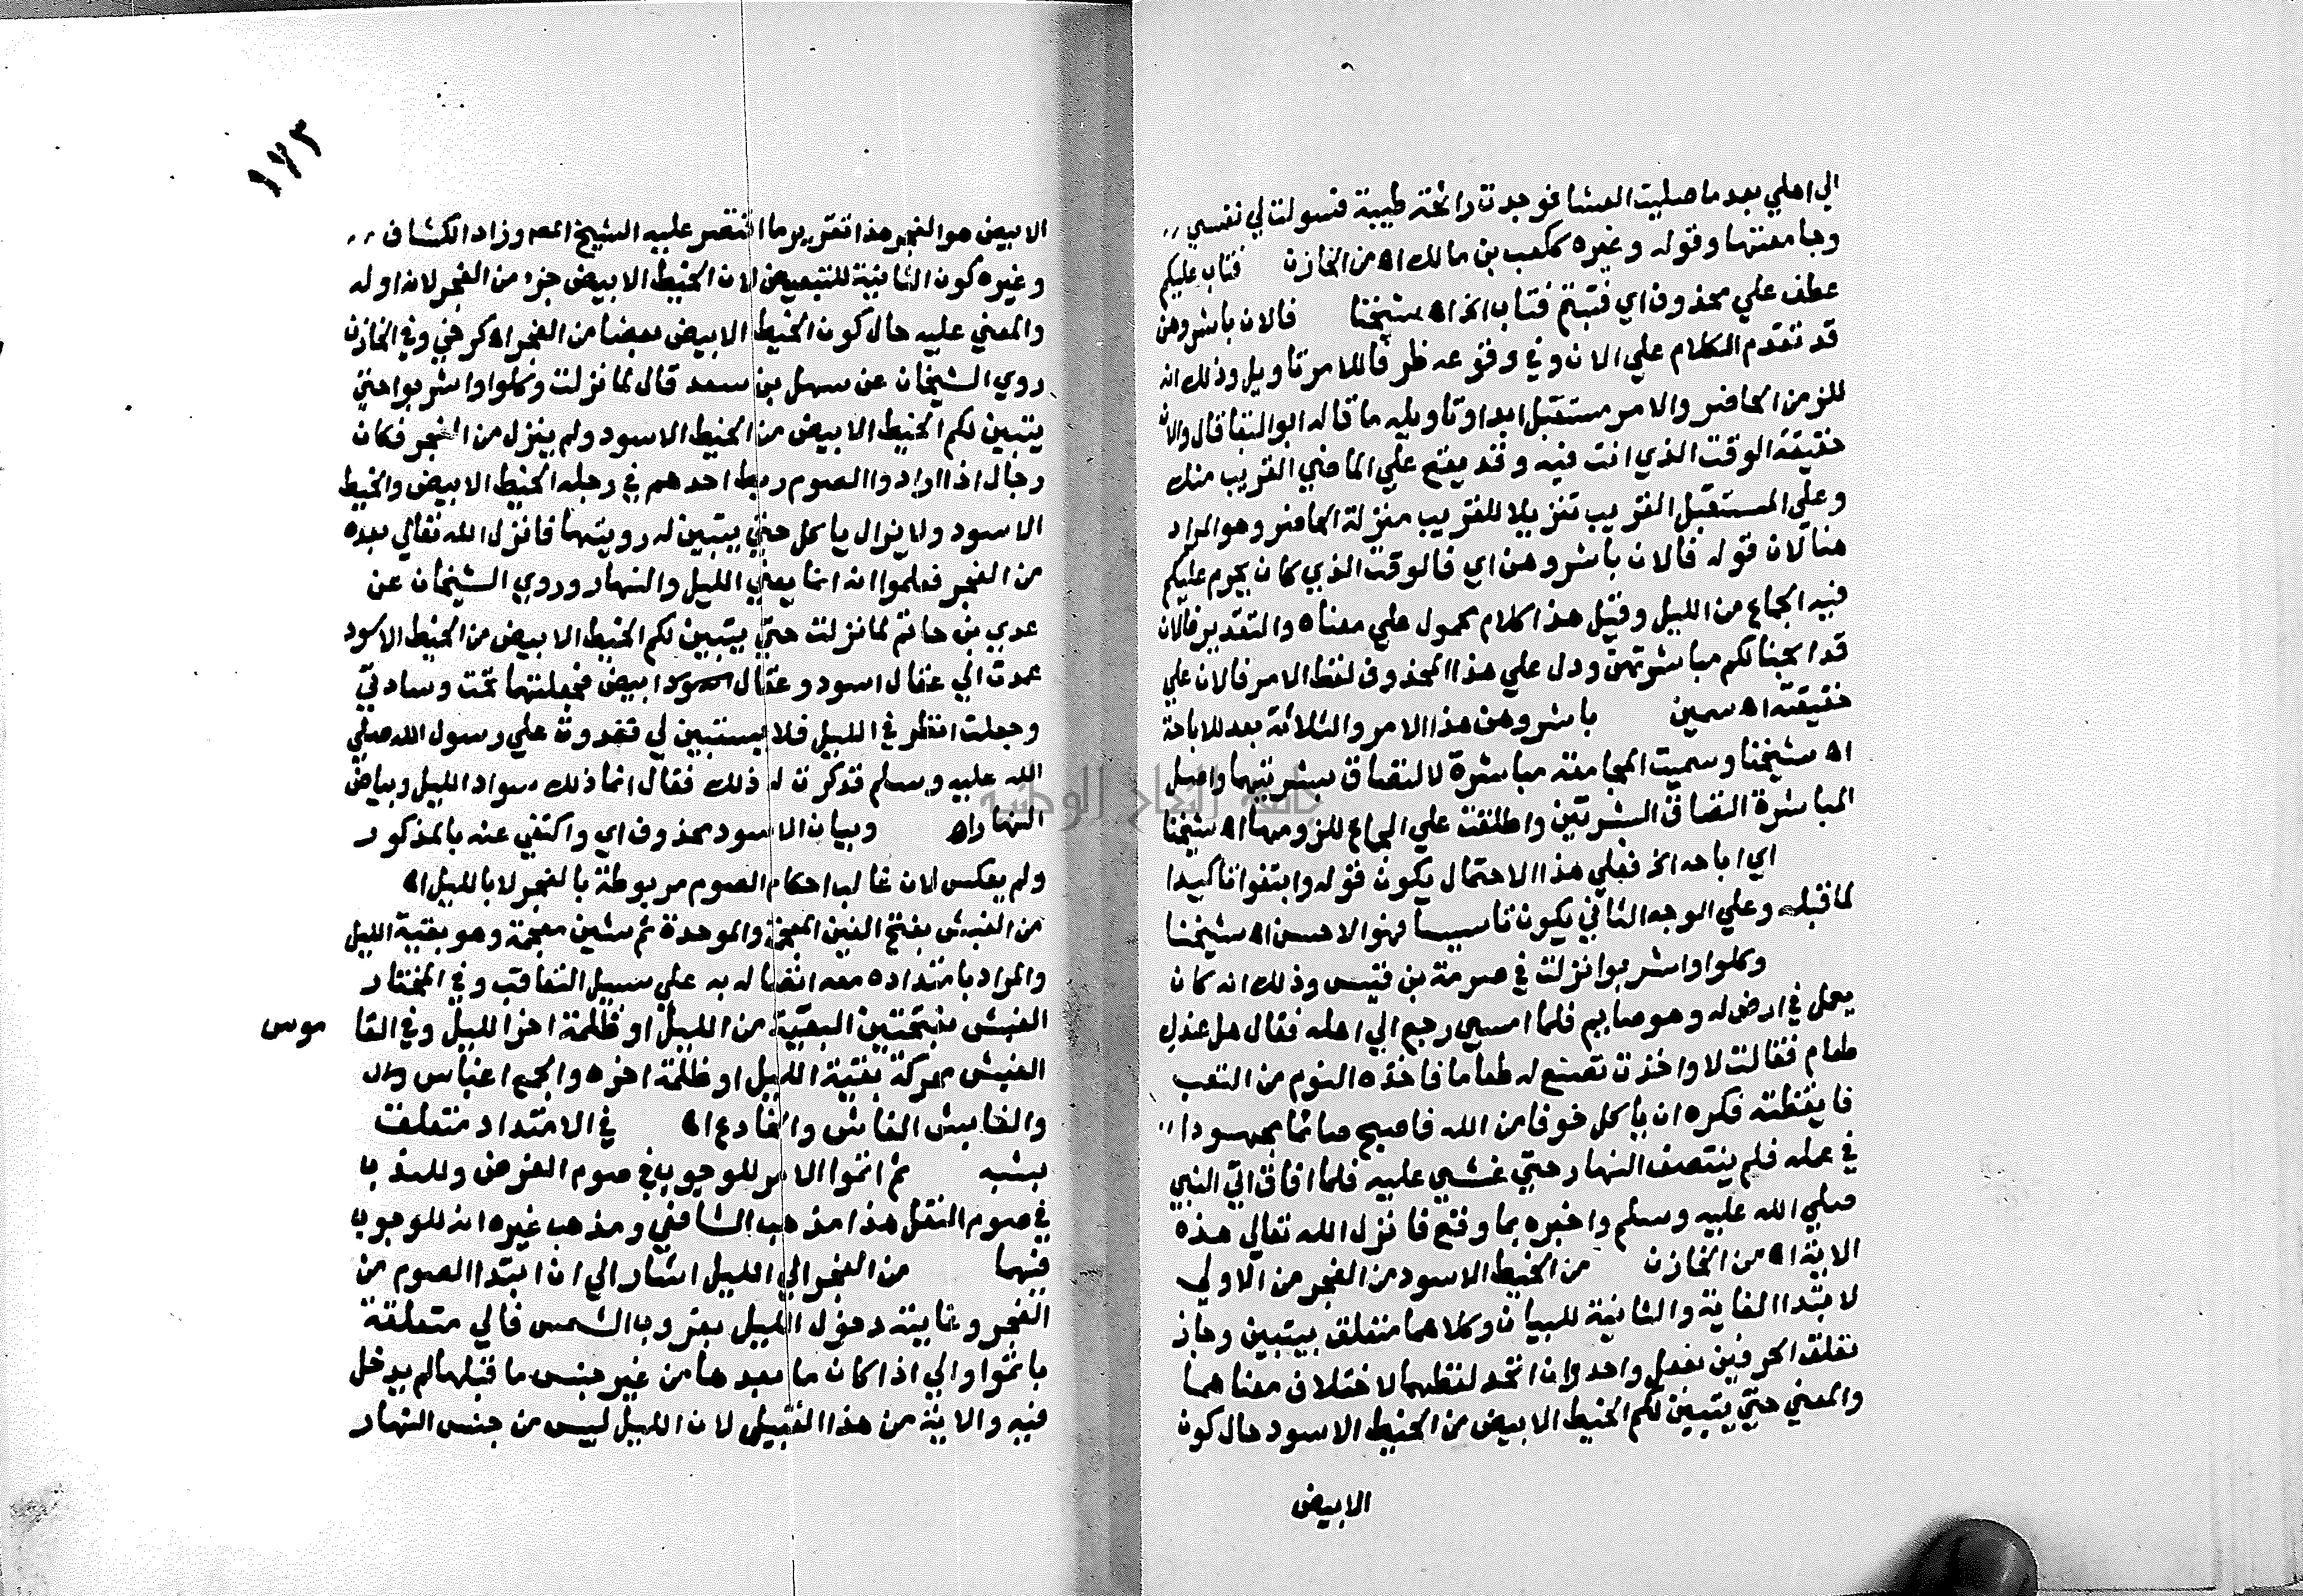 الي اهلي بعد ما صليت العشا فوجدت رائحة طيبة فسولت لي نفسي ،،
وجامعتها وقوله وغيره ككعب بن مالك اه من الخازن فتاب عليكم
عطف علي محذوف اي فتبتم فتاب الخ اه شيخنا فالان باشروهن
قد تقدم الكلام علي الان وفي وقوعه ظرفا للامر تاويل وذلك انه
للزمن الحاضر والامر مستقبل ابدا وتاويله ما قاله ابو البقا قال والان
حقيقة الوقت الذي انت فيه وقد يقع علي الماضي القريب منك
وعلي المستقبل القريب تنزيلا للقريب منزلة الحاضر وهو المراد
هنا لان قوله فالان باشروهن اي فالوقت الذي كان يحرم عليكم
فيه الجماع من الليل وقيل هذا كلام محمول علي معناه والتقدير فالان
قد ابحنا لكم مباشرتهن ودل علي هذا المحذوف لفظ الامر فالان علي
حقيقته اه سمين باشروهن هذا الامر والثلاثة بعد للاباحة
اه شيخنا وسميت المجامعة مباشرة لالتصاق بشرتيهما واصل
المباشرة التصاق البشرتين واطلقت علي الجماع للزومها اه شيخنا
اي اباحه الخ فعلي هذا الاحتمال يكون قوله وابتغوا تاكيدا
لما قبله وعلي الوجه الثاني يكون تاسيسا فهو الاحسن اه شيخنا
وكلوا واشربوا نزلت في صرمة بن قيس وذلك انه كان
يعمل في ارض له وهو صايم فلما امسي رجع الي اهله فقال هل عندك
طعام فقالت لا واخذت تصنع له طعاما فاخذه النوم من التعب
فايقظته فكره ان ياكل خوفا من الله فاصبح صائما مجهودا ،،
في عمله فلم ينتصف النهار حتي غشي عليه فلما افاق اتي النبي
صلي الله عليه وسلم واخبره بما وقع فانزل الله تعالي هذه
الاية اه من الخازن من الخيط الاسود من الفجر من الاولي
لابتدا الغاية والثانية للبيان وكلاهما متعلق بيتبين وجاز
تعلق الحرفين بفعل واحد وان اتحد لفظهما لاختلاف معناهما
والمعني حتي يتبين لكم الخيط الابيض من الخيط الاسود حال كون
الابيض
١٧٣
الابيض هو الفجر هذا تقرير ما اقتصر عليه الشيخ المص وزاد الكشاف ،،
وغيره كون الثانية للتبعيض لان الخيط الابيض جزء من الفجر لانه اوله
والمعني عليه حال كون الخيط الابيض بعضا من الفجر اه كرخي وفي الخازن
روي الشيخان عن سهل بن سعد قال لما نزلت وكلوا واشربوا حتي
يتبين لكم الخيط الابيض من الخيط الاسود ولم ينزل من الفجر فكان
رجال اذا ارادوا الصوم ربط احدهم في رجله الخيط الابيض والخيط
الاسود ولا يزال ياكل حتي يتبين له رويتهما فانزل الله تعالي بعده
من الفجر فعلموا انه انما يعني الليل والنهار وروي الشيخان عن
عدي بن حاتم لما نزلت حتي يتبين لكم الخيط الابيض من الخيط الاسود
عمدت الي عقال اسود وعقال ابيض فجعلتهما تحت وسادتي
وجعلت انظر في الليل فلا يستبين لي فغدوت علي رسول الله صلي
الله عليه وسلم فذكرت له ذلك فقال انما ذلك سواد الليل وبياض
النهار اه وبيان الاسود محذوف اي واكتفي عنه بالمذكور
ولم يعكس لان غالب احكام الصوم مربوطة بالفجر لا بالليل اه
من الغبش بفتح الغين المعجمة والموحدة ثم شين معجمة وهو بقية الليل
والمراد بامتداده معه اتصاله به علي سبيل التعاقب وفي المختار
الغبش بفتحتين البقية من الليل او ظلمة اخر الليل وفي القا موس
الغبش محركة بقية الليل او ظلمة اخره والجمع اغباس
والغابش الغاش والخادع اه في الامتداد متعلق
بشبه ثم اتموا الامر للوجوب في صوم الفرض وللندب
في صوم النفل هذا مذهب الشافعي ومذهب غيره انه للوجوب
فيهما من الفجر الي الليل اشار الي ان ابتدا الصوم من
الفجر وغايته دخول الليل بغروب الشمس فالي متعلقة
باتموا والي اذا كان ما بعدها من غير جنس ما قبلها لم يدخل
فيه والاية من هذا القبيل لان الليل ليس من جنس النهار
جامعة النجاح الوطنية